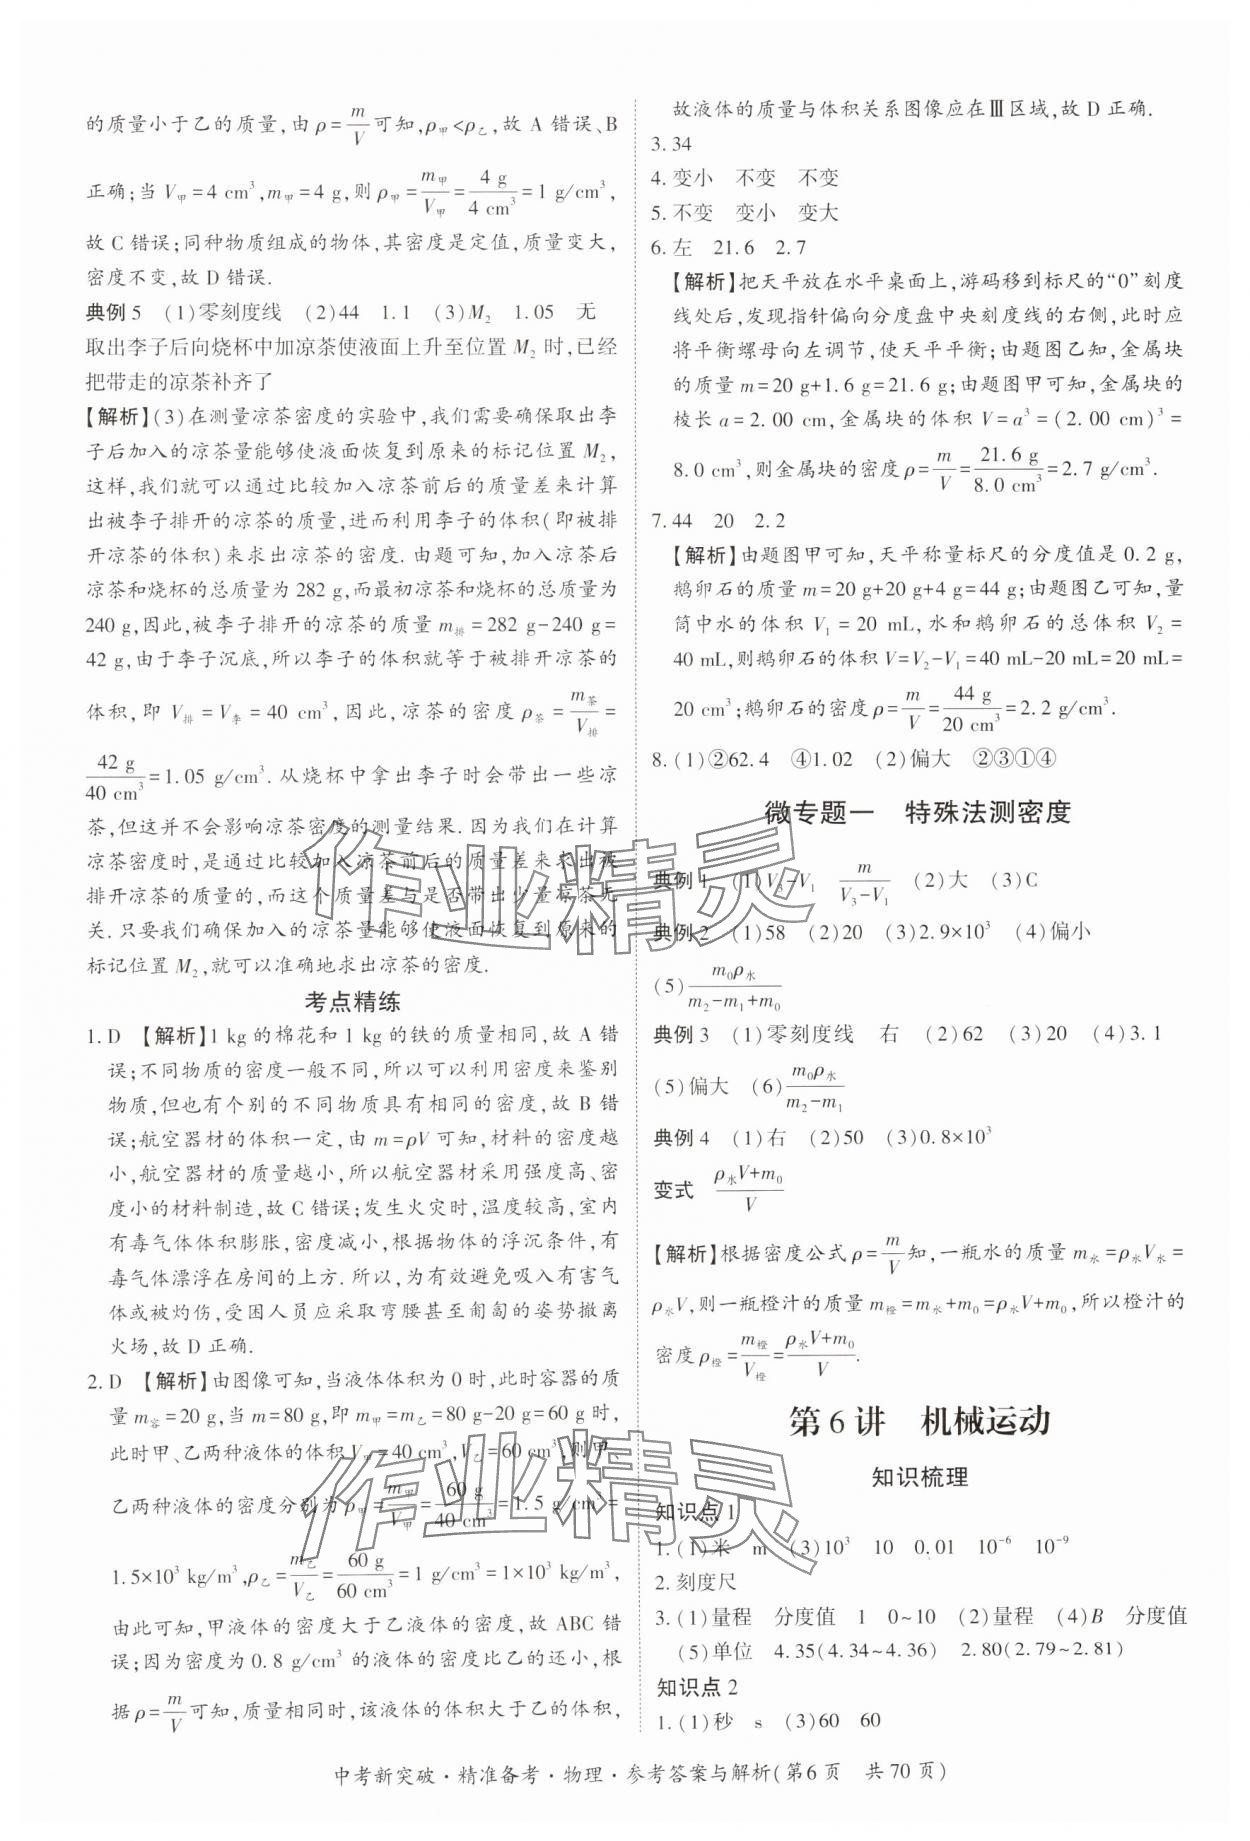 的质量小于乙的质量,由ρ=m/V可知,ρ甲<ρ乙,故 A 错误、B
正确;当 V甲=4 cm³,m甲=4 g,则ρ甲=m甲/V甲=4 g/4 cm³=1 g/cm³,
故 C 错误;同种物质组成的物体,其密度是定值,质量变大,
密度不变,故 D 错误.
典例 5 (1)零刻度线 (2)44 1.1 (3)M₂ 1.05 无
取出李子后向烧杯中加凉茶使液面上升至位置 M₂ 时,已经
把带走的凉茶补齐了
【解析】(3)在测量凉茶密度的实验中,我们需要确保取出李
子后加入的凉茶量能够使液面恢复到原来的标记位置 M₂,
这样,我们就可以通过比较加入凉茶前后的质量差来计算
出被李子排开的凉茶的质量,进而利用李子的体积(即被排
开凉茶的体积)来求出凉茶的密度. 由题可知,加入凉茶后
凉茶和烧杯的总质量为 282 g,而最初凉茶和烧杯的总质量为
240 g,因此,被李子排开的凉茶的质量 m排=282 g-240 g=
42 g,由于李子沉底,所以李子的体积就等于被排开凉茶的
体积,即 V排=V李=40 cm³,因此,凉茶的密度ρ茶=m茶/V排=
42 g/40 cm³=1.05 g/cm³. 从烧杯中拿出李子时会带出一些凉
茶,但这并不会影响凉茶密度的测量结果. 因为我们在计算
凉茶密度时,是通过比较加入凉茶前后的质量差来求出被
排开凉茶的质量的,而这个质量差与是否带出少量凉茶无
关. 只要我们确保加入的凉茶量能够使液面恢复到原来的
标记位置 M₂,就可以准确地求出凉茶的密度.
考点精练
1. D 【解析】1 kg 的棉花和 1 kg 的铁的质量相同,故 A 错
误;不同物质的密度一般不同,所以可以利用密度来鉴别
物质,但也有个别的不同物质具有相同的密度,故 B 错
误;航空器材的体积一定,由 m=ρV 可知,材料的密度越
小,航空器材的质量越小,所以航空器材采用强度高、密
度小的材料制造,故 C 错误;发生火灾时,温度较高,室内
有毒气体体积膨胀,密度减小,根据物体的浮沉条件,有
毒气体漂浮在房间的上方. 所以,为有效避免吸入有害气
体或被灼伤,受困人员应采取弯腰甚至匍匐的姿势撤离
火场,故 D 正确.
2. D 【解析】由图像可知,当液体体积为 0 时,此时容器的质
量 m容=20 g,当 m=80 g,即 m甲=m乙=80 g-20 g=60 g 时,
此时甲、乙两种液体的体积 V甲=40 cm³,V乙=60 cm³,则甲、
乙两种液体的密度分别为ρ甲=m甲/V甲=60 g/40 cm³=1.5 g/cm³=
1.5×10³ kg/m³,ρ乙=m乙/V乙=60 g/60 cm³=1 g/cm³=1×10³ kg/m³,
由此可知,甲液体的密度大于乙液体的密度,故 ABC 错
误;因为密度为 0.8 g/cm³ 的液体的密度比乙的还小,根
据ρ=m/V可知,质量相同时,该液体的体积大于乙的体积,
故液体的质量与体积关系图像应在Ⅲ区域,故 D 正确.
3. 34
4. 变小 不变 不变
5. 不变 变小 变大
6. 左 21.6 2.7
【解析】把天平放在水平桌面上,游码移到标尺的“0”刻度
线处后,发现指针偏向分度盘中央刻度线的右侧,此时应
将平衡螺母向左调节,使天平平衡;由题图乙知,金属块
的质量 m=20 g+1.6 g=21.6 g;由题图甲可知,金属块的
棱长 a=2.00 cm,金属块的体积 V=a³=(2.00 cm)³=
8.0 cm³,则金属块的密度ρ=m/V=21.6 g/8.0 cm³=2.7 g/cm³.
7. 44 20 2.2
【解析】由题图甲可知,天平称量标尺的分度值是 0.2 g,
鹅卵石的质量 m=20 g+20 g+4 g=44 g;由题图乙可知,量
筒中水的体积 V₁=20 mL,水和鹅卵石的总体积 V₂=
40 mL,则鹅卵石的体积 V=V₂-V₁=40 mL-20 mL=20 mL=
20 cm³;鹅卵石的密度ρ=m/V=44 g/20 cm³=2.2 g/cm³.
8. (1)②62.4 ④1.02 (2)偏大 ②③①④
微专题一 特殊法测密度
典例 1 (1)V₃-V₁ m/(V₃-V₁) (2)大 (3)C
典例 2 (1)58 (2)20 (3)2.9×10³ (4)偏小
(5)m₀ρ水/(m₂-m₁+m₀)
典例 3 (1)零刻度线 右 (2)62 (3)20 (4)3.1
(5)偏大 (6)m₀ρ水/(m₂-m₁)
典例 4 (1)右 (2)50 (3)0.8×10³
变式 (ρ水V+m₀)/V
【解析】根据密度公式ρ=m/V知,一瓶水的质量 m水=ρ水V水=
ρ水V,则一瓶橙汁的质量 m橙=m水+m₀=ρ水V+m₀,所以橙汁的
密度ρ橙=m橙/V橙=(ρ水V+m₀)/V.
第 6 讲 机械运动
知识梳理
知识点 1
1. (1)米 m (3)10³ 10 0.01 10⁻⁶ 10⁻⁹
2. 刻度尺
3. (1)量程 分度值 1 0~10 (2)量程 (4)B 分度值
(5)单位 4.35(4.34~4.36) 2.80(2.79~2.81)
知识点 2
1. (1)秒 s (3)60 60
中考新突破·精准备考·物理·参考答案与解析(第6页 共70页)
作业精灵
作业精灵